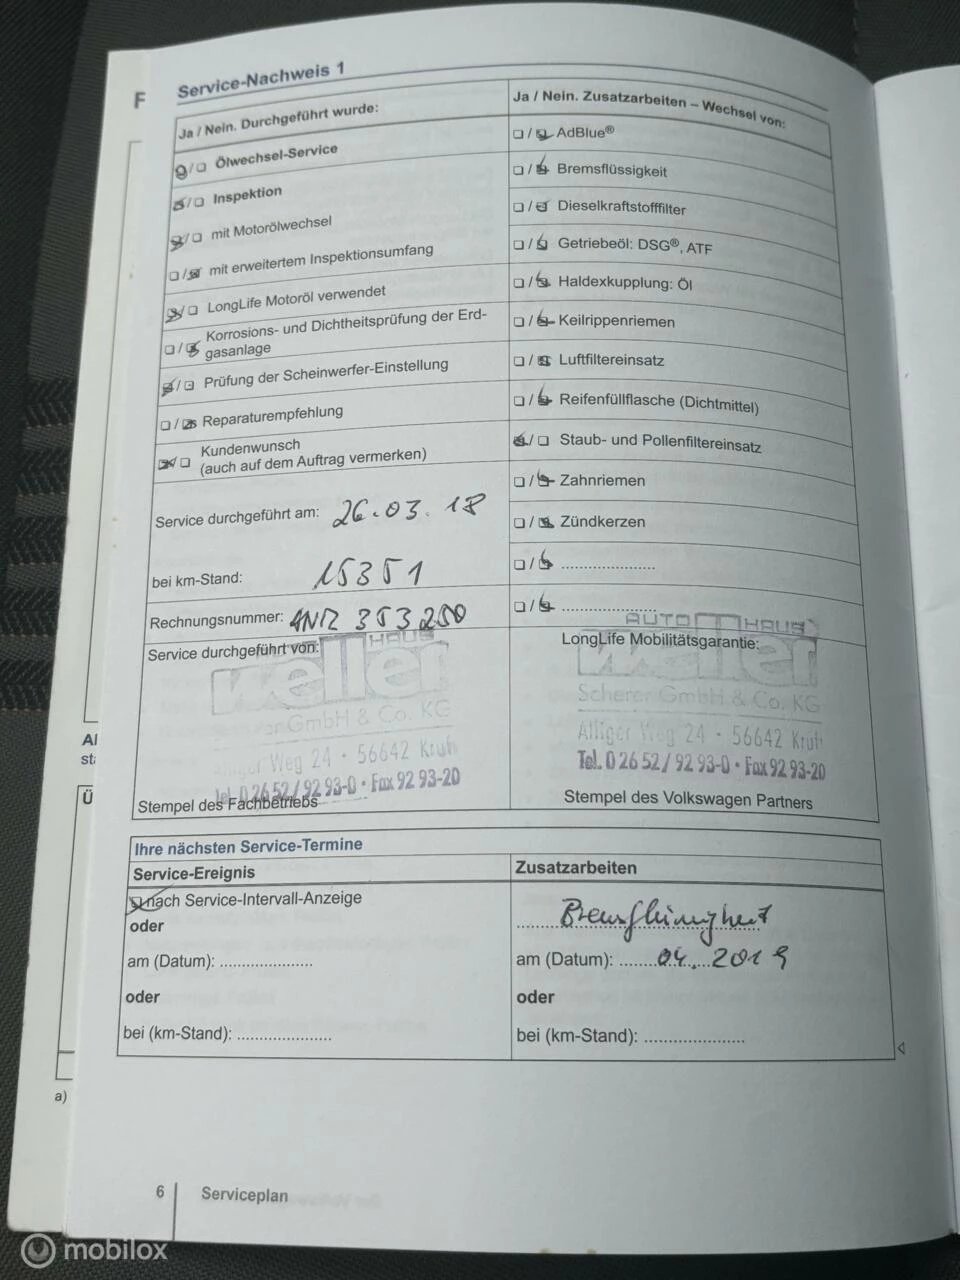 F
Service-Nachweis 1
Ja / Nein. Durchgeführt wurde:
Ölwechsel-Service
Inspektion
mit Motorölwechsel
mit erweitertem Inspektionsumfang
LongLife Motoröl verwendet
Korrosions- und Dichtheitsprüfung der Erd-
gasanlage
Prüfung der Scheinwerfer-Einstellung
Reparaturempfehlung
Kundenwunsch
(auch auf dem Auftrag vermerken)
Service durchgeführt am: 26.03.18
bei km-Stand: 15351
Rechnungsnummer: 353250
Service durchgeführt von:
HAUS
weller
GmbH & Co. KG
Alliger Weg 24 · 56642 Kruft
Tel. 0 26 52 / 92 93-0 · Fax 92 93-20
Stempel des Fachbetriebs
Ja / Nein. Zusatzarbeiten – Wechsel von:
AdBlue®
Bremsflüssigkeit
Dieselkraftstofffilter
Getriebeöl: DSG®, ATF
Haldexkupplung: Öl
Keilrippenriemen
Luftfiltereinsatz
Reifenfüllflasche (Dichtmittel)
Staub- und Pollenfiltereinsatz
Zahnriemen
Zündkerzen
AUTO HAUS
LongLife Mobilitätsgarantie:
weller
Scherer GmbH & Co. KG
Alliger Weg 24 · 56642 Kruft
Tel. 0 26 52 / 92 93-0 · Fax 92 93-20
Stempel des Volkswagen Partners
Ihre nächsten Service-Termine
Service-Ereignis
nach Service-Intervall-Anzeige
oder
am (Datum): ......................
oder
bei (km-Stand): ......................
Zusatzarbeiten
Bremsflüssigkeit
am (Datum): 04. 2019
oder
bei (km-Stand): ......................
Al
Ü
a)
6 Serviceplan
mobilox